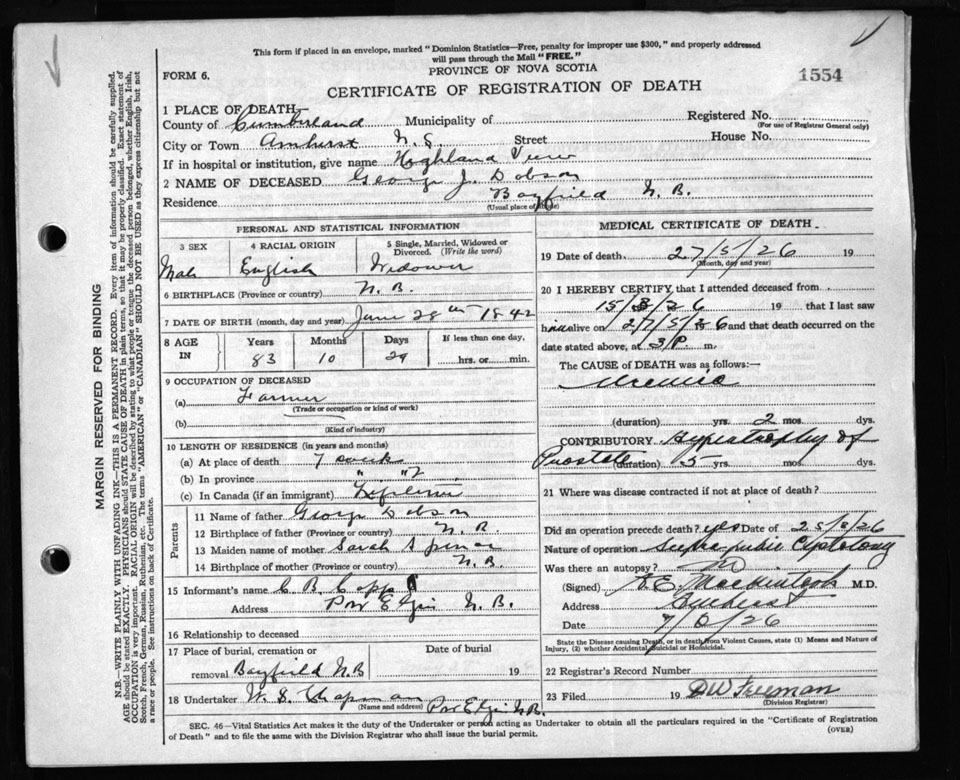 This form if placed in an envelope, marked "Dominion Statistics—Free, penalty for improper use $300," and properly addressed
will pass through the Mail "FREE."
PROVINCE OF NOVA SCOTIA
FORM 6.
1554
CERTIFICATE OF REGISTRATION OF DEATH
MARGIN RESERVED FOR BINDING
N.B.—WRITE PLAINLY WITH UNFADING INK—THIS IS A PERMANENT RECORD. Every item of information should be carefully supplied.
AGE should be stated EXACTLY. PHYSICIANS should STATE CAUSE OF DEATH in plain terms, so that it may be properly classified. Exact statement of
OCCUPATION is very important. RACIAL ORIGIN will be described by stating to what people or tongue the deceased person belonged, whether English, Irish,
Scotch, French, German, Russian, Ruthenian, etc. The terms "AMERICAN" or "CANADIAN" SHOULD NOT BE USED as they express citizenship but not
a race or people. See instructions on back of Certificate.
1 PLACE OF DEATH—
County of Cumberland Municipality of Registered No.
(For use of Registrar General only)
City or Town Amherst N. S Street House No.
If in hospital or institution, give name Highland View
2 NAME OF DECEASED George J. Dobson
Residence Bayfield N. B.
(Usual place of abode)
PERSONAL AND STATISTICAL INFORMATION
3 SEX 4 RACIAL ORIGIN 5 Single, Married, Widowed or
Divorced. (Write the word)
Male English Widower
6 BIRTHPLACE (Province or country) N. B.
7 DATE OF BIRTH (month, day and year) June 28th 1842
8 AGE IN Years Months Days If less than one day,
83 10 29 hrs. or min.
9 OCCUPATION OF DECEASED
(a) Farmer
(Trade or occupation or kind of work)
(b)
(Kind of industry)
10 LENGTH OF RESIDENCE (in years and months)
(a) At place of death 7 week
(b) In province " "
(c) In Canada (if an immigrant) Lifetime
Parents
11 Name of father George Dobson
12 Birthplace of father (Province or country) N. B.
13 Maiden name of mother Sarah
14 Birthplace of mother (Province or country) N. B.
15 Informant's name C B Copp
Address Port Elgin N. B.
16 Relationship to deceased
17 Place of burial, cremation or Date of burial
removal Bayfield N.B 19
18 Undertaker W. S. Chapman
(Name and address) Port Elgin N.B.
MEDICAL CERTIFICATE OF DEATH
19 Date of death 27/5/26 19
(Month, day and year)
20 I HEREBY CERTIFY, that I attended deceased from
15/3/26 19 that I last saw
him alive on 27/5/26 and that death occurred on
date stated above, at 3 P. m.
The CAUSE of DEATH was as follows:—
Uremia
(duration) yrs. 2 mos. dys.
CONTRIBUTORY Hypertrophy of
Prostate (duration) 5 yrs. mos. dys.
21 Where was disease contracted if not at place of death?
Did an operation precede death? yes Date of
Nature of operation Supra-pubic Cystotomy
Was there an autopsy? no
(Signed) Mackintosh M.D.
Address Amherst
Date 7/6/26
State the Disease causing Death, or in death from Violent Causes, state (1) Means and Nature of
Injury, (2) whether Accidental, Suicidal or Homicidal.
22 Registrar's Record Number
23 Filed 19 DW Freeman
(Division Registrar)
SEC. 46—Vital Statistics Act makes it the duty of the Undertaker or person acting as Undertaker to obtain all the particulars required in the "Certificate of Registration
of Death" and to file the same with the Division Registrar who shall issue the burial permit.
(OVER)